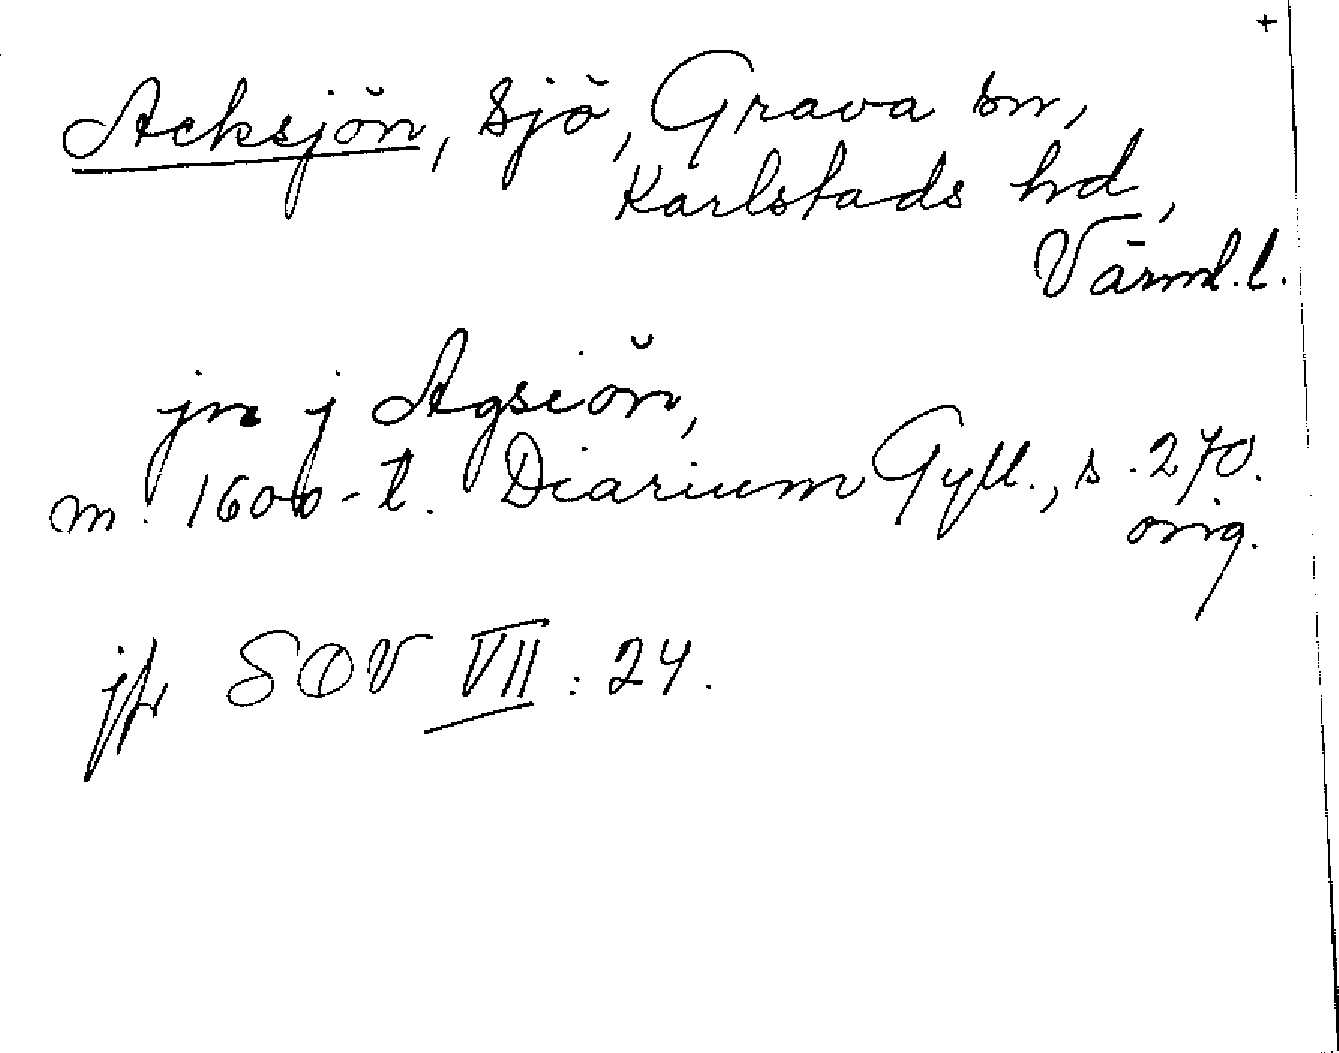 +
Acksjön, sjö, Grava sn,
Karlstads hd,
Värml.l.
jn j Agsiön,
m. 1600-t. Diarium Gyll., s. 270.
orig.
jfr SOV VII: 24.